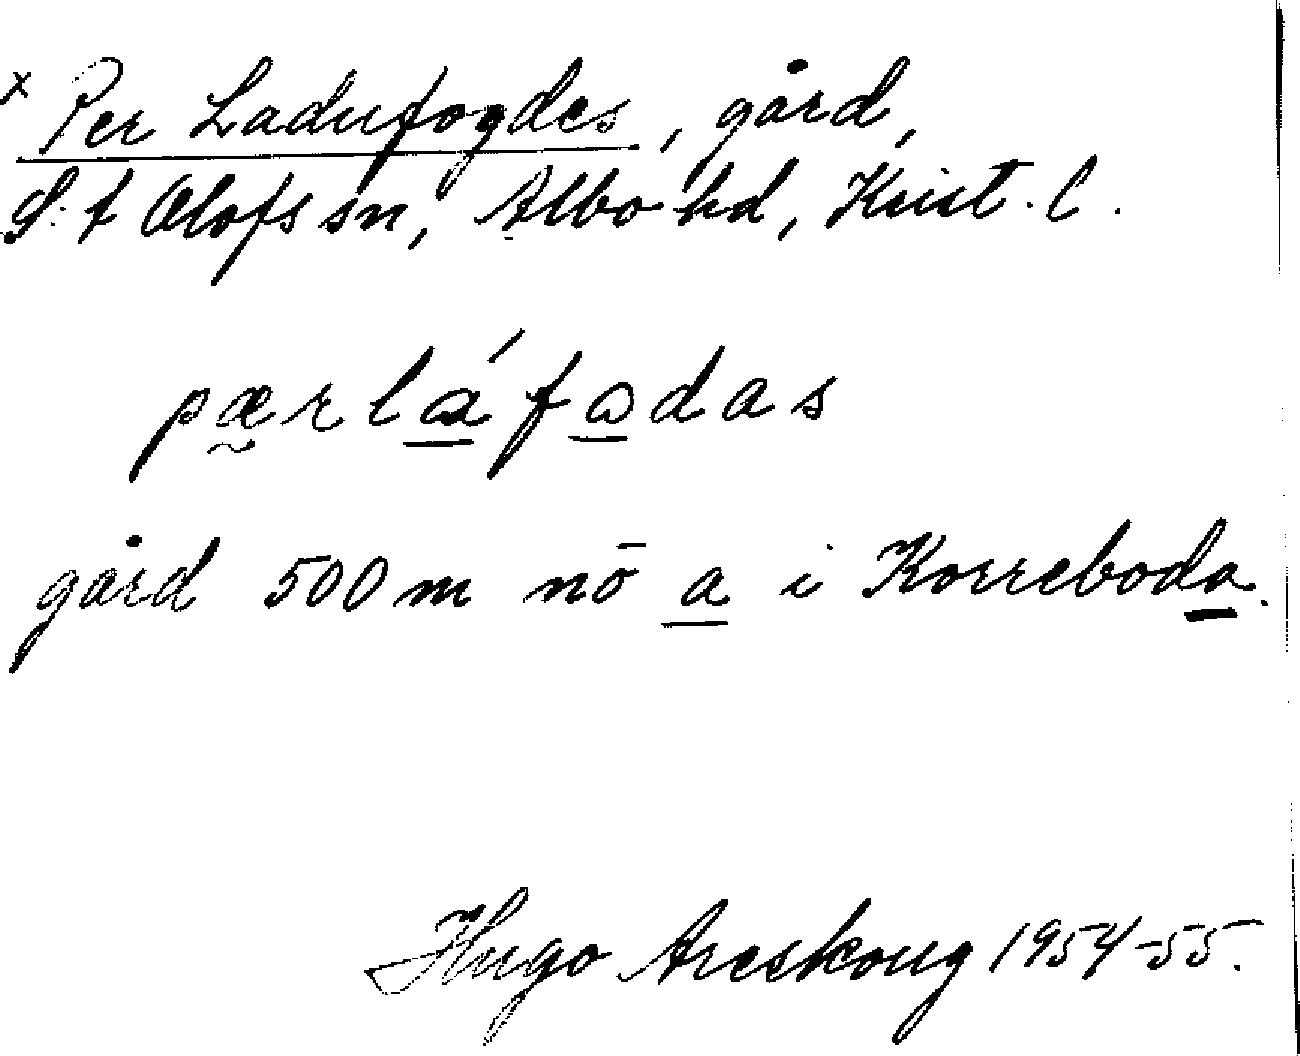 x Per Ladufogdes, gård,
S:t Olofs sn, Albo hd, Krist. l.
pærláfodas
gård 500 m nō a i Korreboda.
Hugo Areskoug 1954-55.